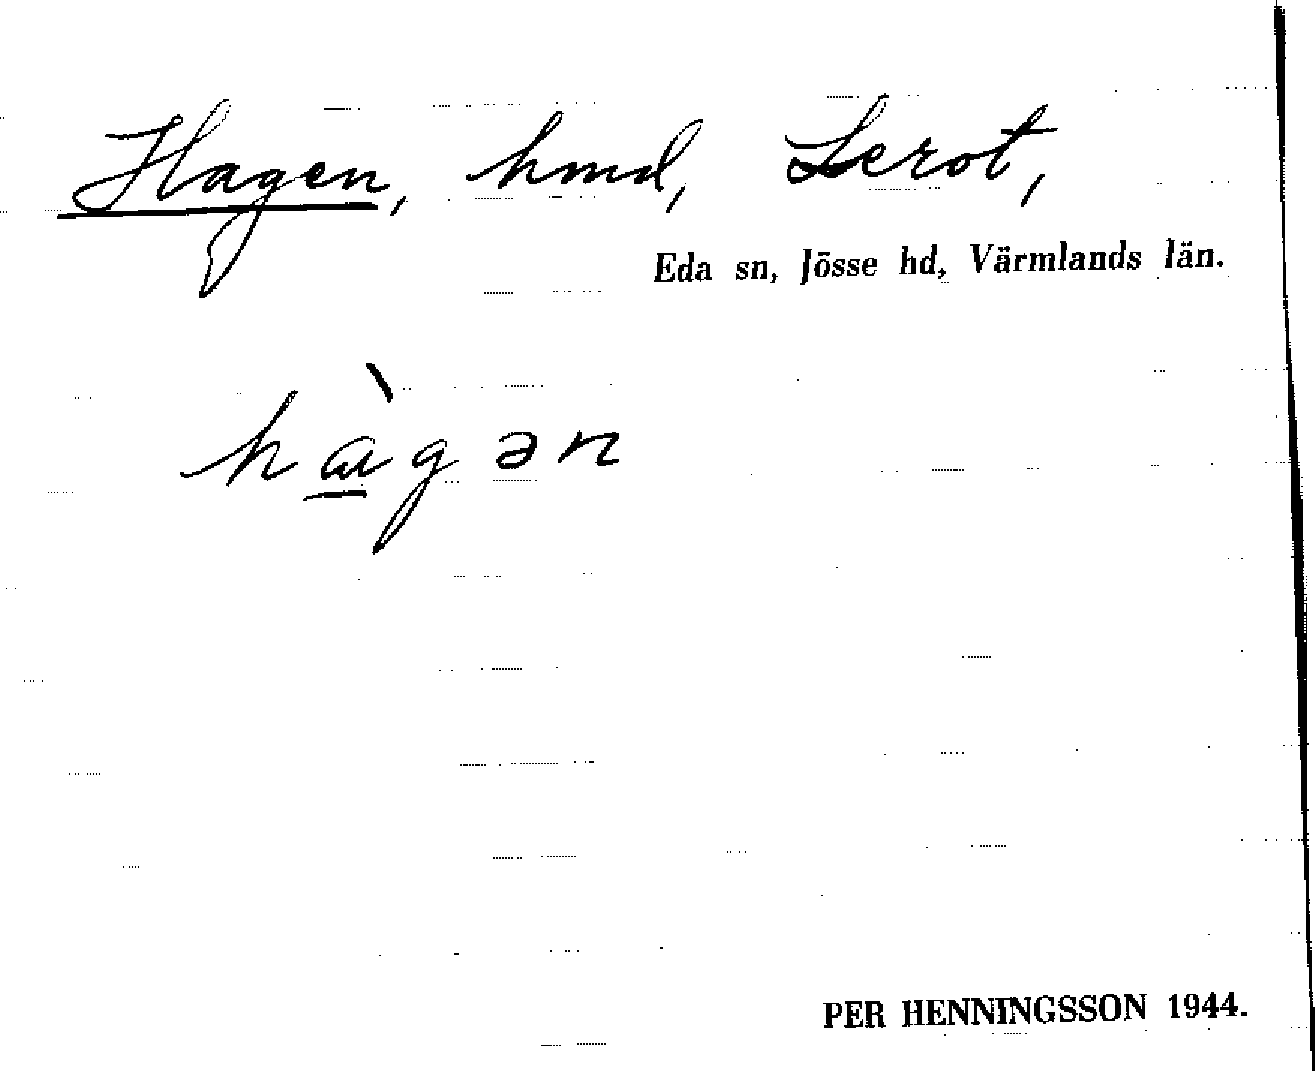 Hagen, hmd, Lerot,
Eda sn, Jösse hd, Värmlands län.
hàgən
PER HENNINGSSON 1944.